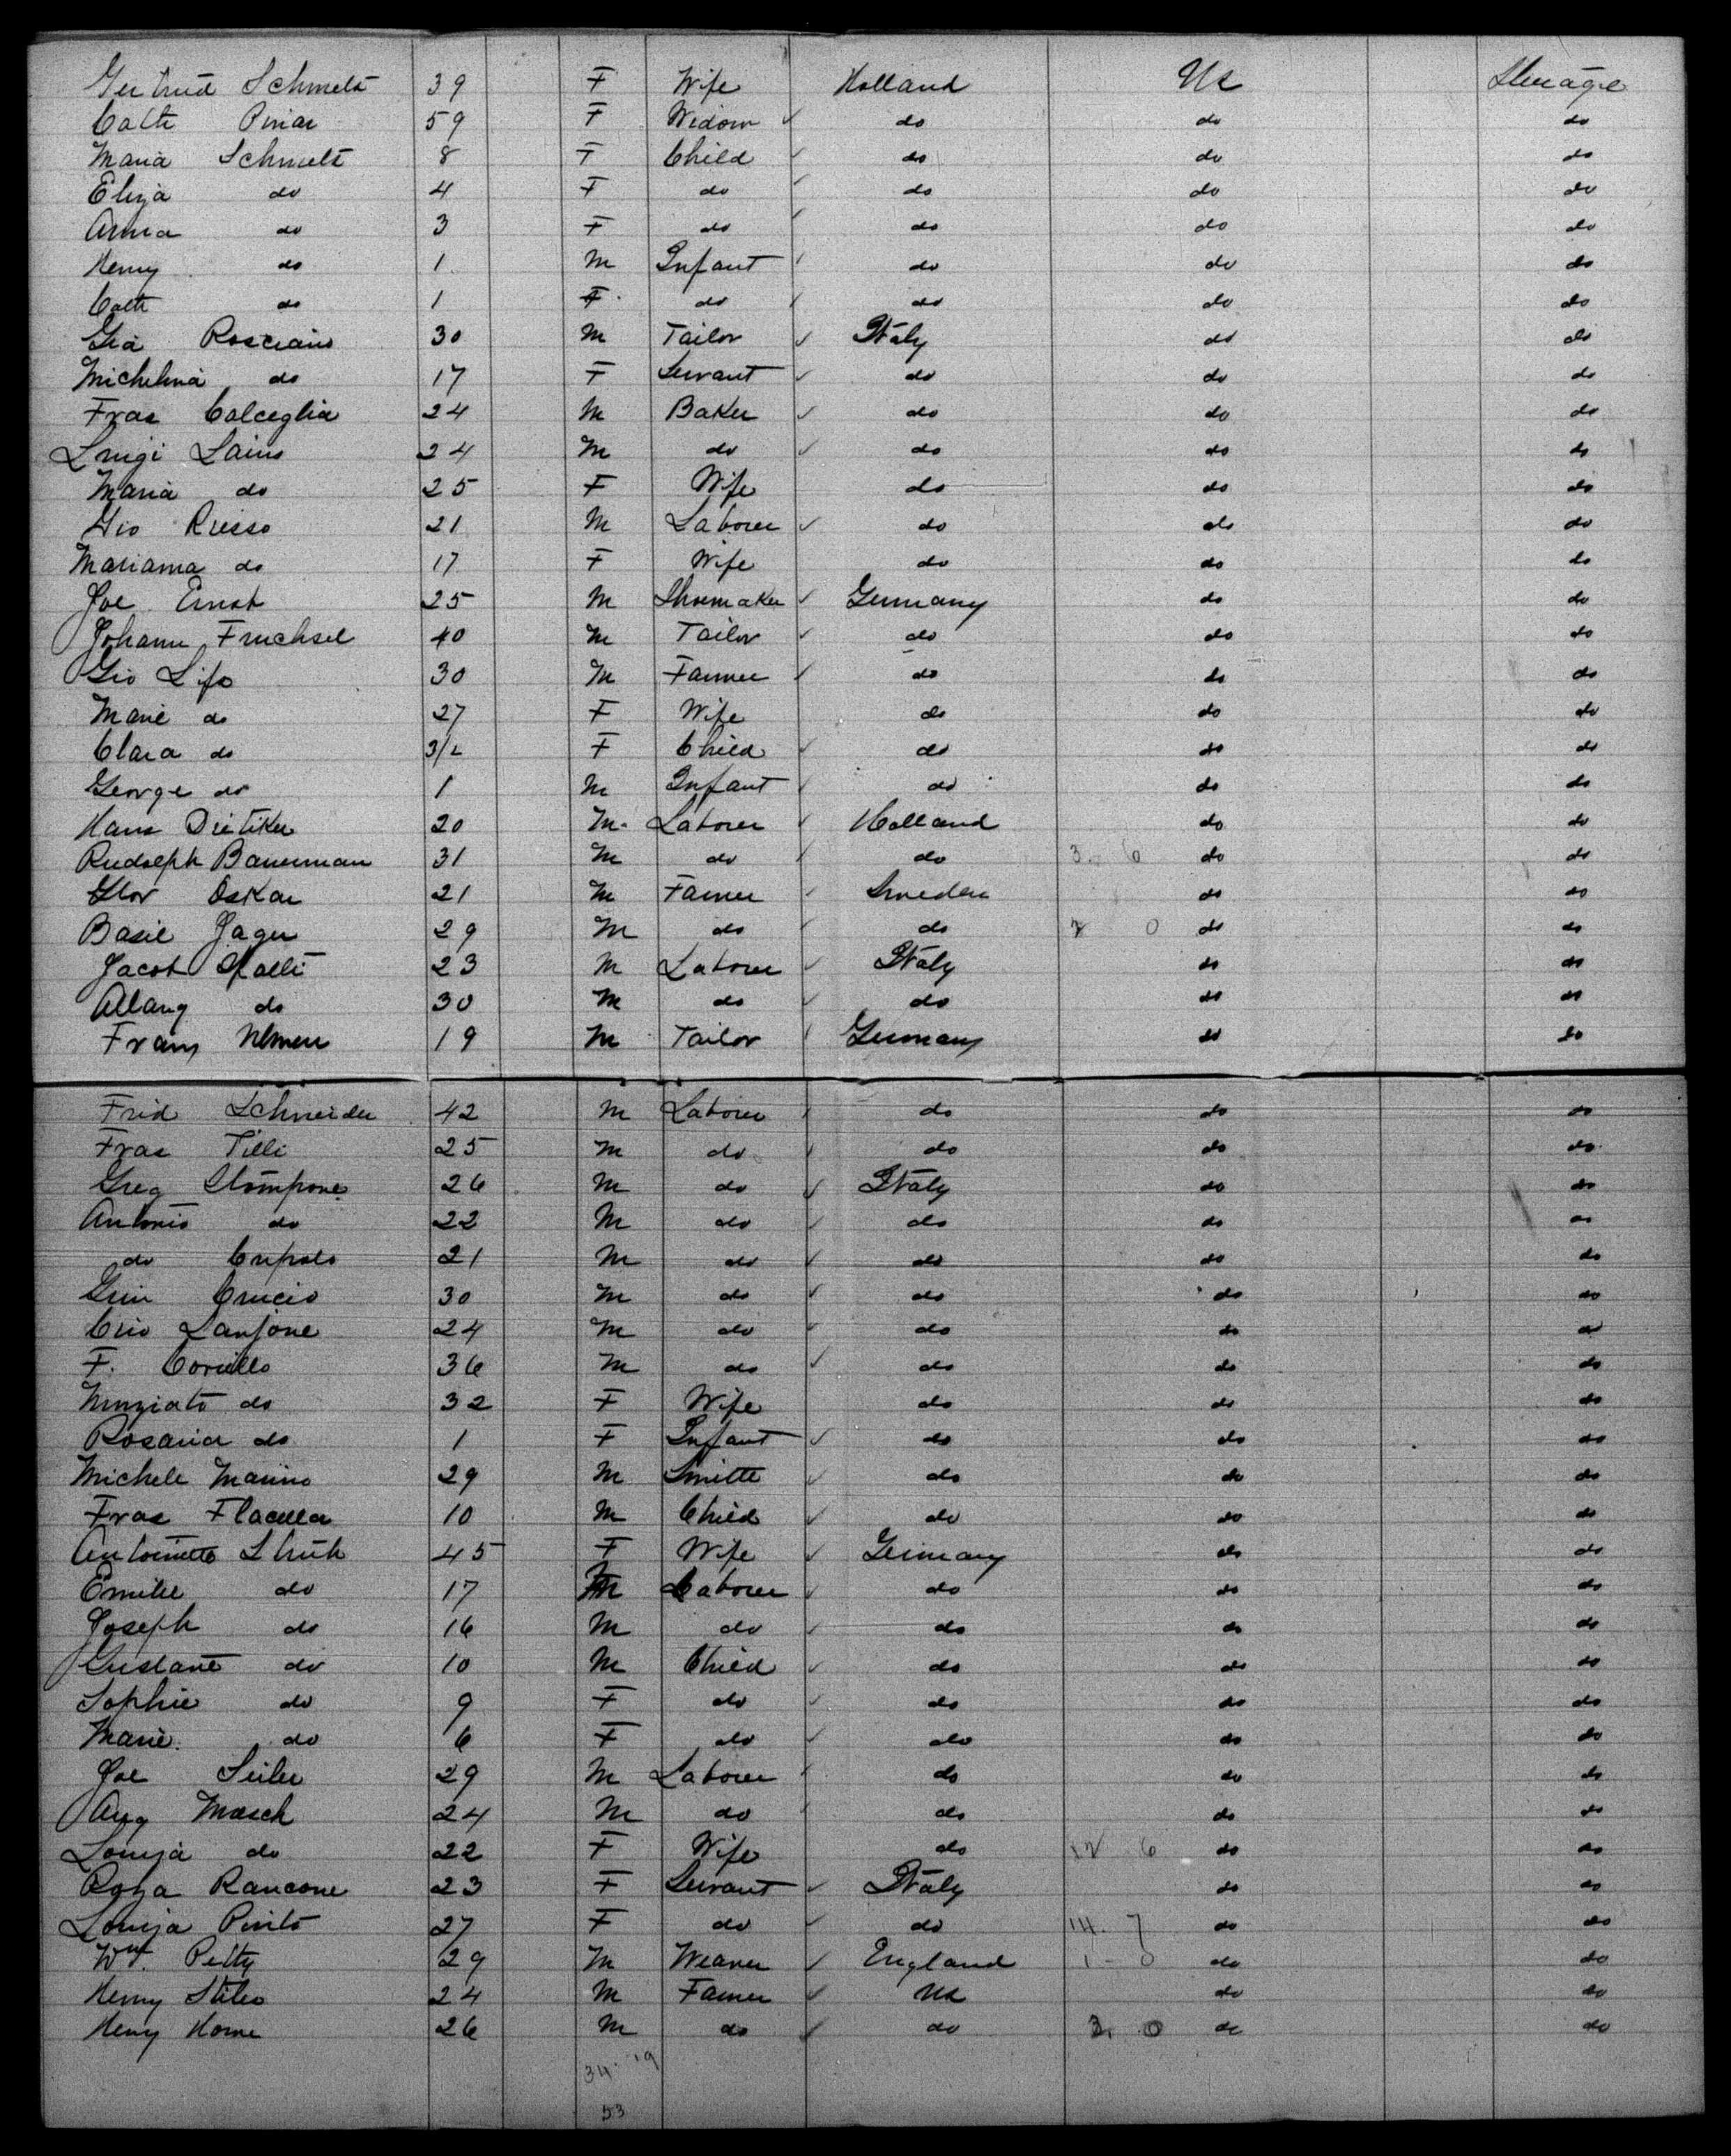 Gertrud Schmelt 39 F Wife Holland US Steerage
Cath Pinar 59 F Widow ✓ do do do
Maria Schmelt 8 F Child ✓ do do do
Eliza do 4 F do ✓ do do do
Anna do 3 F do ✓ do do do
Henry do 1 M Infant ✓ do do do
Cath do 1 F do ✓ do do do
Gia Rosciano 30 M Tailor ✓ Italy do do
Michelina do 17 F Servant ✓ do do do
Fras Calceglia 24 M Baker ✓ do do do
Luigi Laino 24 M do ✓ do do do
Maria do 25 F Wife do do do
Gio Russo 21 M Laborer ✓ do do do
Marianna do 17 F Wife do do do
Joe Ernst 25 M Shoemaker ✓ Germany do do
Johann Fruchsel 40 M Tailor ✓ do do do
Gio Lifo 30 M Farmer ✓ do do do
Marie do 27 F Wife do do do
Clara do 3/2 F Child ✓ do do do
George do 1 M Infant ✓ do do do
Hans Dietiker 20 M. Laborer ✓ Holland do do
Rudolph Bauerman 31 M do ✓ do 3. 6 do do
Oskar 21 M Farmer ✓ Sweden do do
Basil Jager 29 M do ✓ do 0 do do
Jacob Galli 23 M Laborer ✓ Italy do do
do 30 M do ✓ do do do
Franz 19 M Tailor ✓ Germany do do
Frid Schneider 42 M Laborer ✓ do do do
Fras Tilli 25 M do ✓ do do do
Greg Stompone 26 M do ✓ Italy do do
Antonio do 22 M do ✓ do do do
do Cupolo 21 M do ✓ do do do
Crucio 30 M do ✓ do do do
Ciro Lanfone 24 M do ✓ do do do
F. Coriello 36 M do ✓ do do do
Nunziato do 32 F Wife do do do
Rosaria do 1 F Infant ✓ do do do
Michele Marino 29 M Smith ✓ do do do
Fras Flacella 10 M Child ✓ do do do
Antoinette 45 F Wife ✓ Germany do do
Emilie do 17 M Laborer ✓ do do do
Joseph do 16 M do ✓ do do do
Gustave do 10 M Child ✓ do do do
Sophie do 9 F do ✓ do do do
Marie do 6 F do ✓ do do do
Joe Seiler 29 M Laborer ✓ do do do
Aug Masch 24 M do ✓ do do do
Louiza do 22 F Wife do 12 6 do do
Roza Rancone 23 F Servant ✓ Italy do do
Louiza Pinto 27 F do ✓ do 14. 7 do do
Wm. Petty 29 M Weaver ✓ England 1 - 0 do do
Henry Stiles 24 M Farmer ✓ US do do
Henry Horne 26 M do ✓ do 3. 0 do do
34 19
53